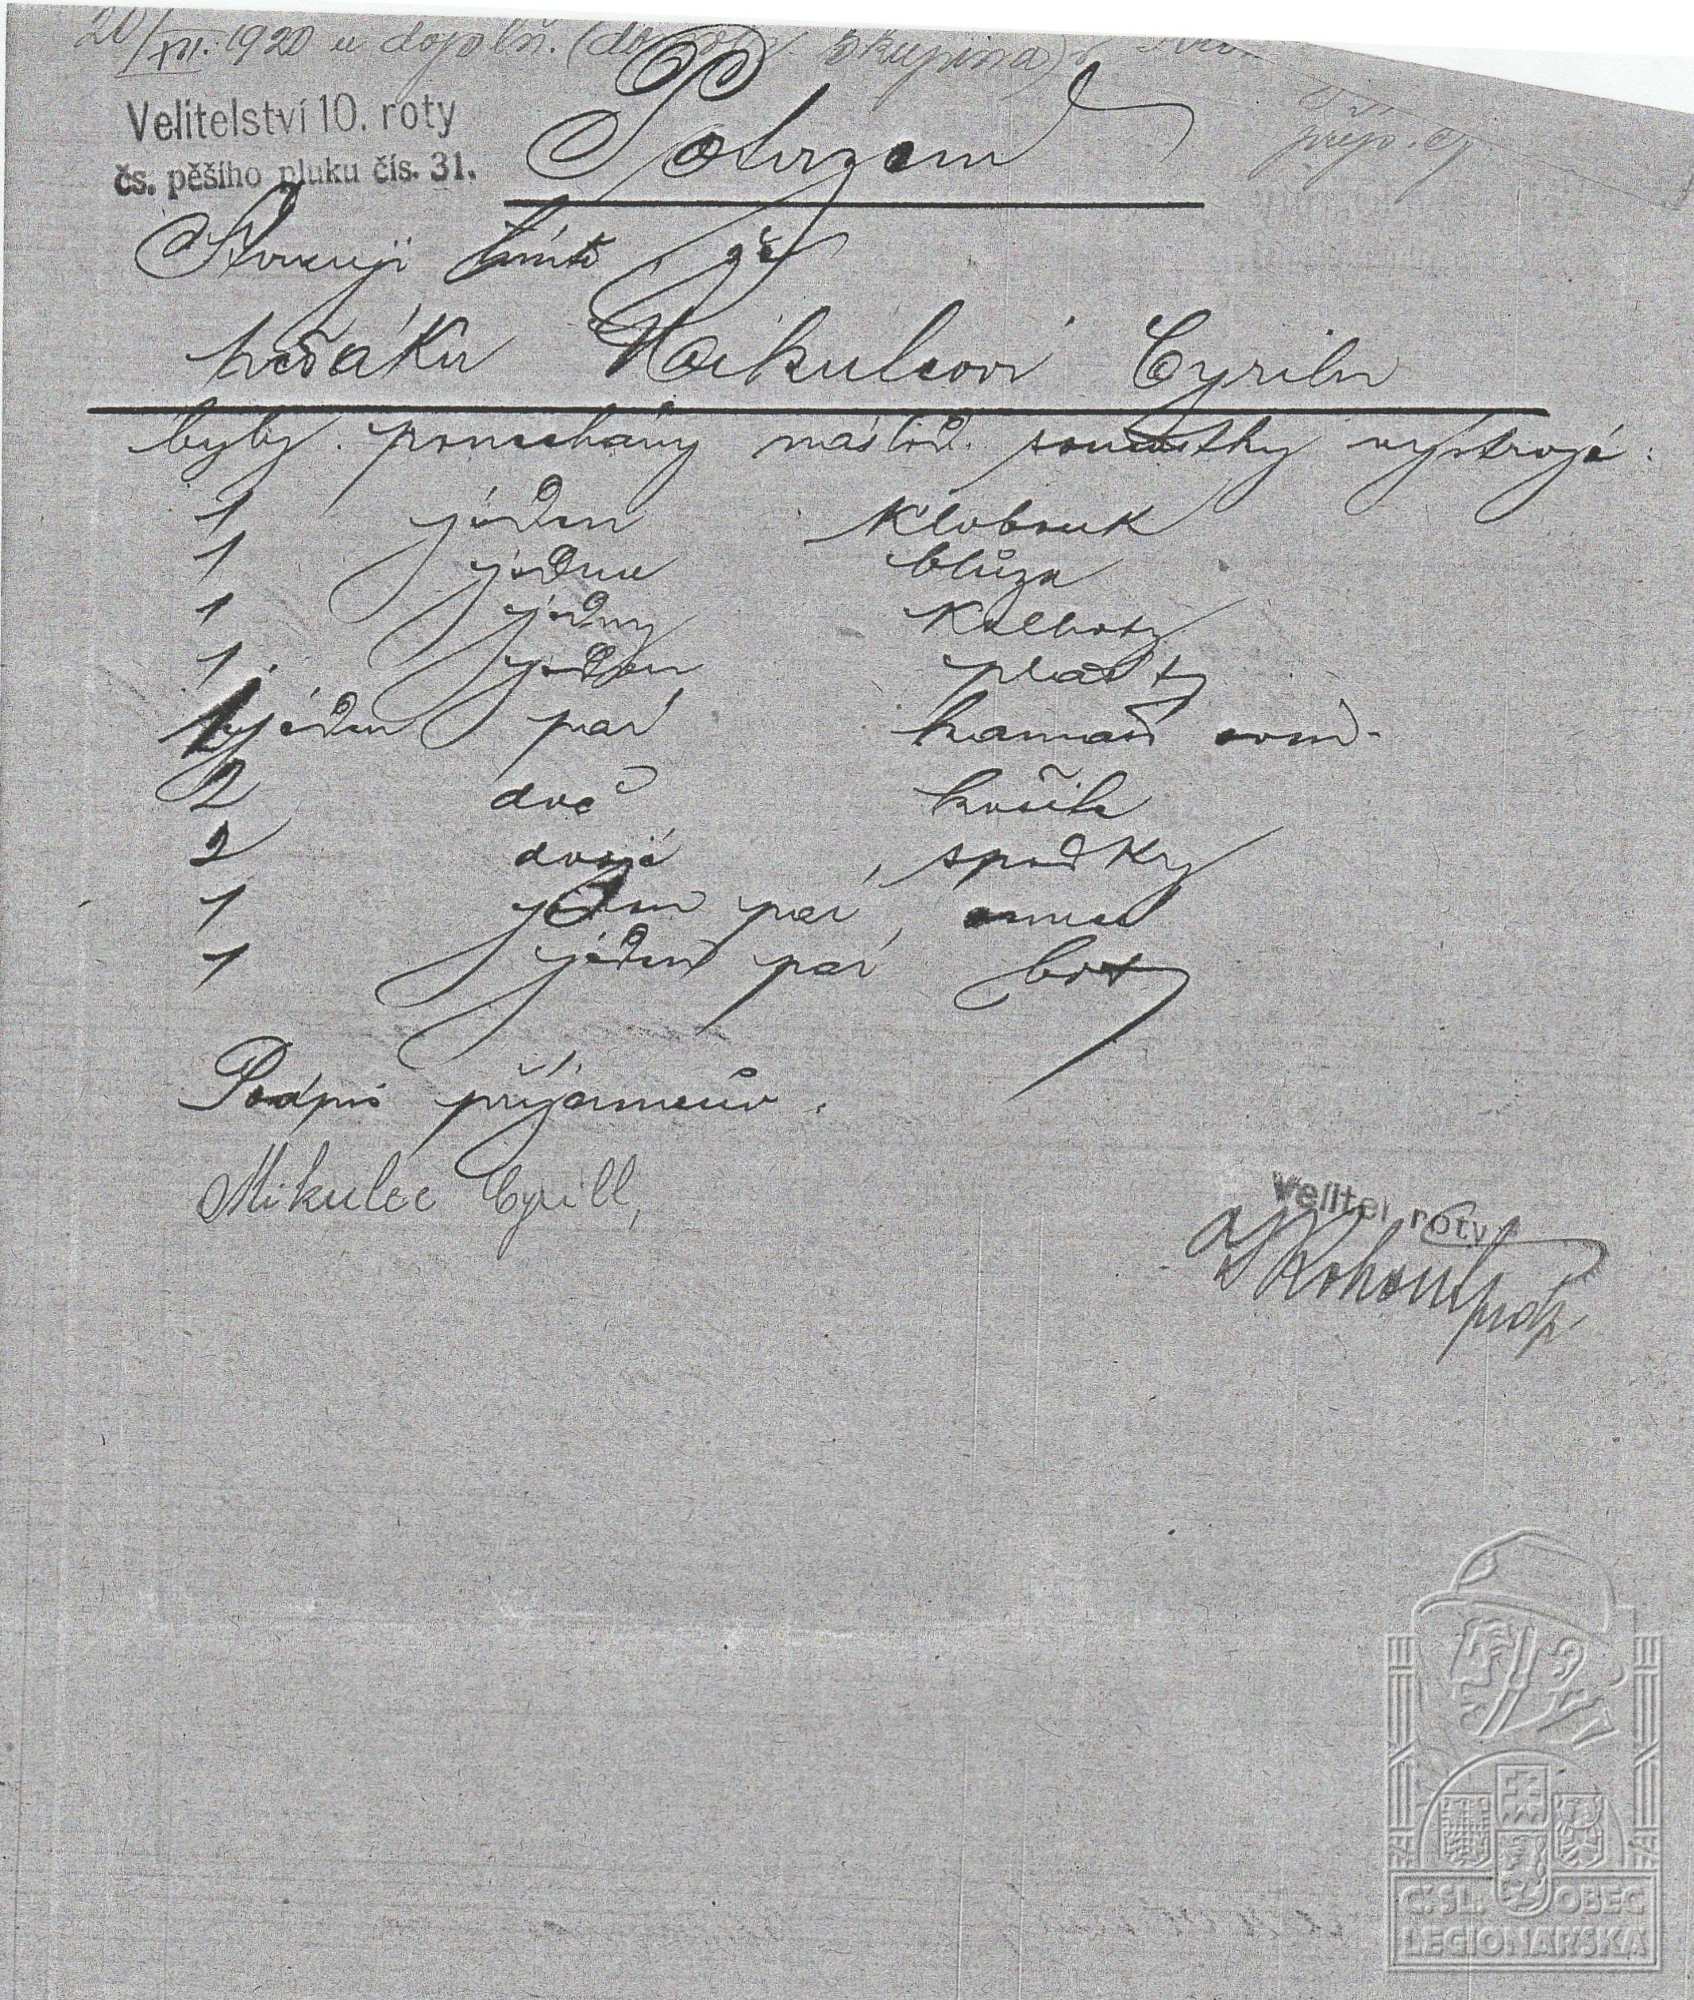 20/XII. 1920 u doplň. ( skupina)
Velitelství 10. roty
čs. pěšího pluku čís. 31.
Potvrzení
Stvrzuji tímto, že
Mikulcovi Cyrilu
byly ponechány násled. součástky výstroje:
1 jeden klobouk
1 jedna blůza
1 jedny kalhoty
1 jeden plášť
1 jeden pár kamaší
2 dvě košile
2 dvoje spodky
1 jeden pár onuc
1 jeden pár bot
Podpis příjemcův.
Mikulec Cyrill,
Velitel roty
ČSL. OBEC
LEGIONÁŘSKÁ